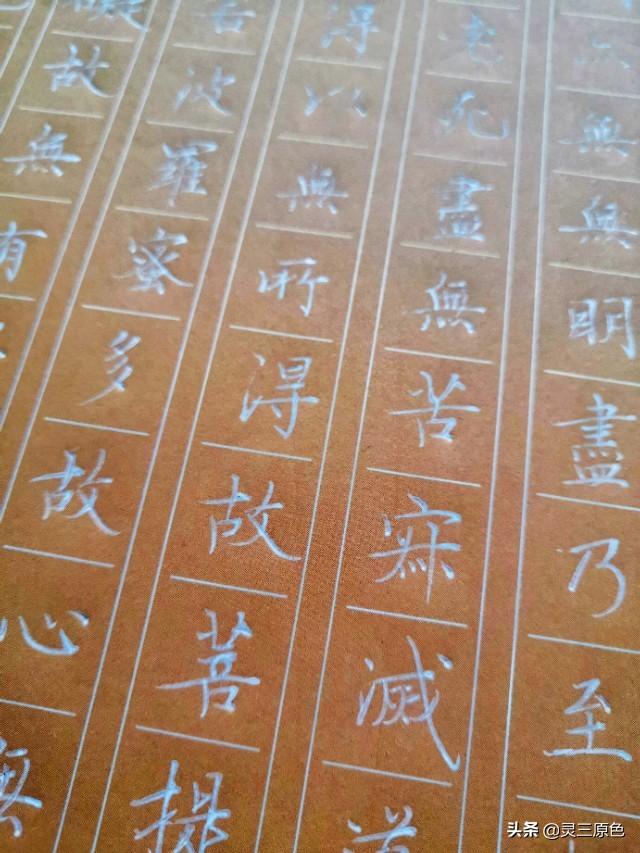 亦無無明盡乃至
老死盡無苦寂滅道
得以無所得故菩提
若波羅蜜多故心無
礙故無有
头条 @灵三原色